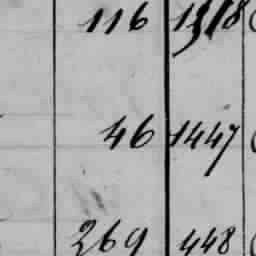 116 1318
46 1447
269 448